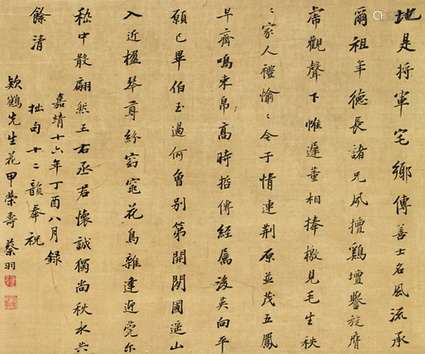 地是将軍宅鄉傳善士名風流承
爾祖年德長諸兄風擅鷄壇譽旋膺
虎觀聲下帷遲董相捧檄見毛生秩
〻家人禮愉〻令子情連荆原並茂五鳳
早齊鳴束帛高時哲傳經属後英向平
願已畢伯玉過何曾別第開園逕山
入近楹琴尊紛窈窕花鳥雜逢迎覺尔
嵇中散翩然王右丞君懷誠獨尚秋水共
餘清
嘉靖十六年丁酉八月録
拙句十二韻奉祝
欵鶴先生花甲榮壽 蔡羽